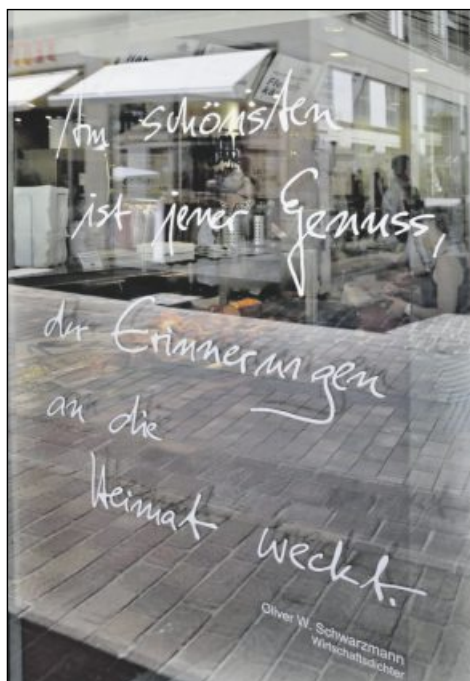 Am schönsten
ist jener Genuss,
der Erinnerungen
an die
Heimat weckt.
Oliver W. Schwarzmann
Wirtschaftsdichter